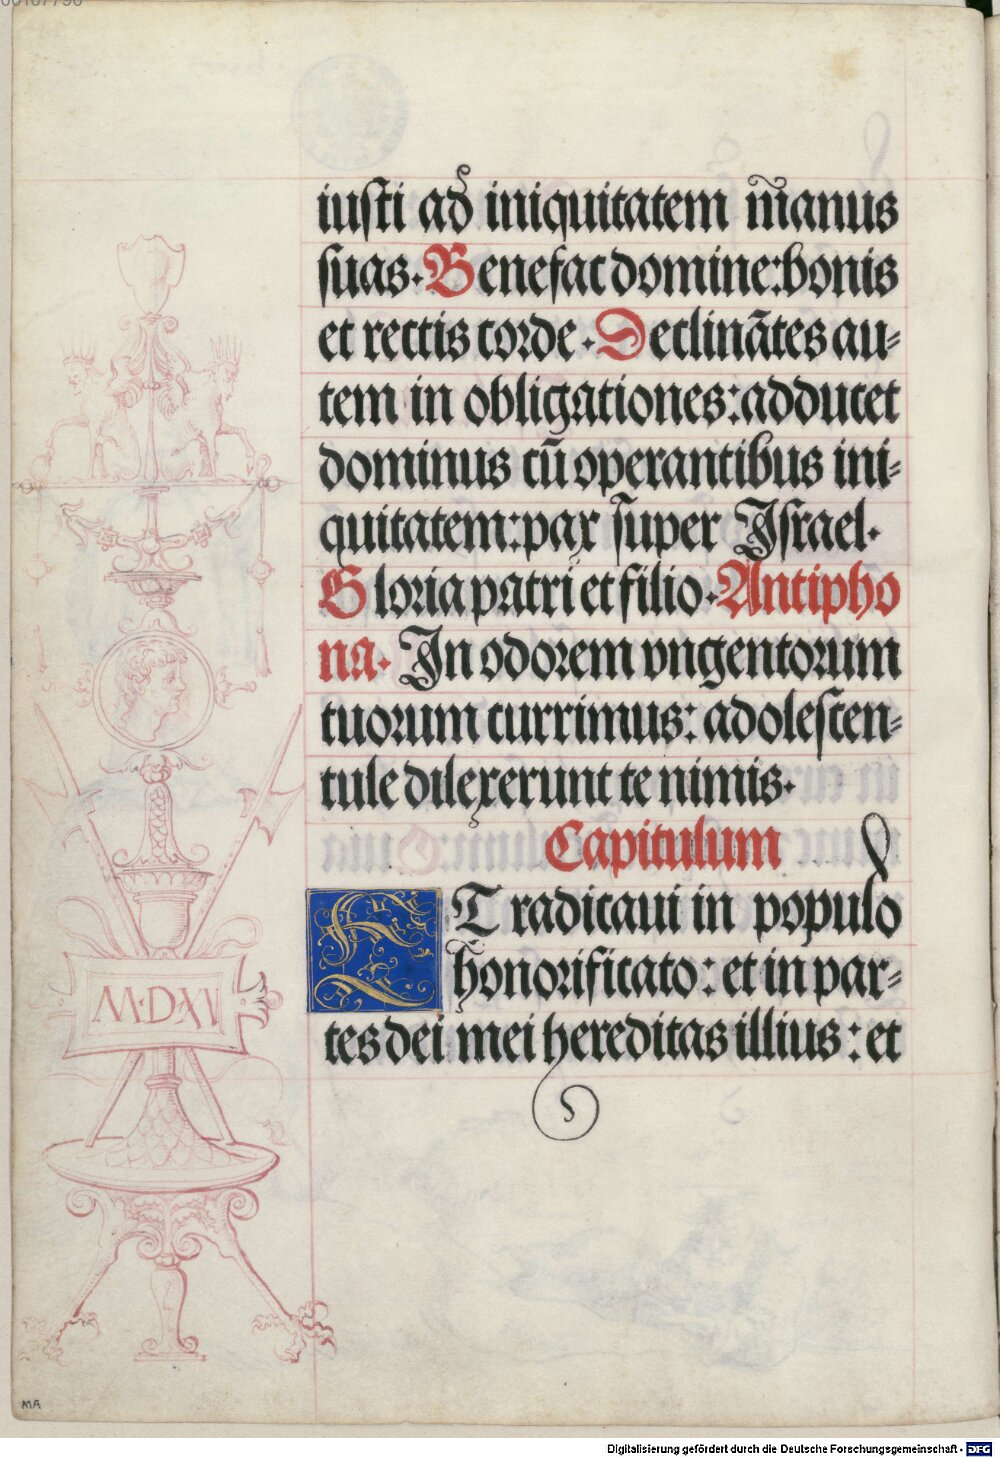 iusti ad iniquitatem manus
suas. Benefac domine: bonis
et rectis corde. Declinātes au-
tem in obligationes: adducet
dominus cū operantibus ini-
quitatem: pax super Israel.
Gloria patri et filio. Antipho
na. In odorem vngentorum
tuorum currimus: adolescen-
tule dilexerunt te nimis.
Capitulum
ET radicaui in populo
honorificato: et in par-
tes dei mei hereditas illius: et
M·DXV
MA
Digitalisierung gefördert durch die Deutsche Forschungsgemeinschaft - DFG